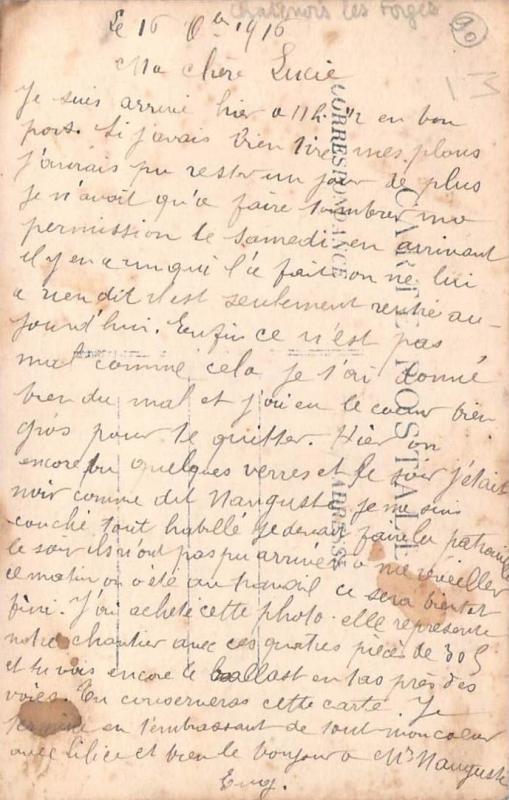 Chatenois les Forges
90
13
Le 16 1916
Ma chère Lucie
Je suis arrivé hier a 11h 1/2 en bon
port. Si j'avais bien tiré mes plans
j'aurais pu rester un jour de plus
Je n'avait qu'a faire timbrer ma
permission le samedi en arrivant
il y en a un qui l'a fait on ne lui
a rien dit il est seulement rentré au-
jourd'hui. Enfin ce n'est pas
mal comme cela je t'ai donné
bien du mal et j'ai eu le cœur bien
gros pour te quitter. Hier on
encore bu quelques verres et le soir j'étais
noir comme dit Nauguste je me suis
couché tout habillé je devait faire la patrouille
le soir ils n'ont pas pu arriver a me réveiller
ce matin on a été au travail ce sera bientot
fini. J'ai acheté cette photo elle représente
notre chantier avec ces quatres pièces de 305
et tu vois encore le ballast en tas près des
voies. Tu conserveras cette carte. Je
termine en t'embrassant de tout mon cœur
avec et bien le bonjour a Mr Nauguste
Eug.
CARTE POSTALE
CORRESPONDANCE
ADRESSE